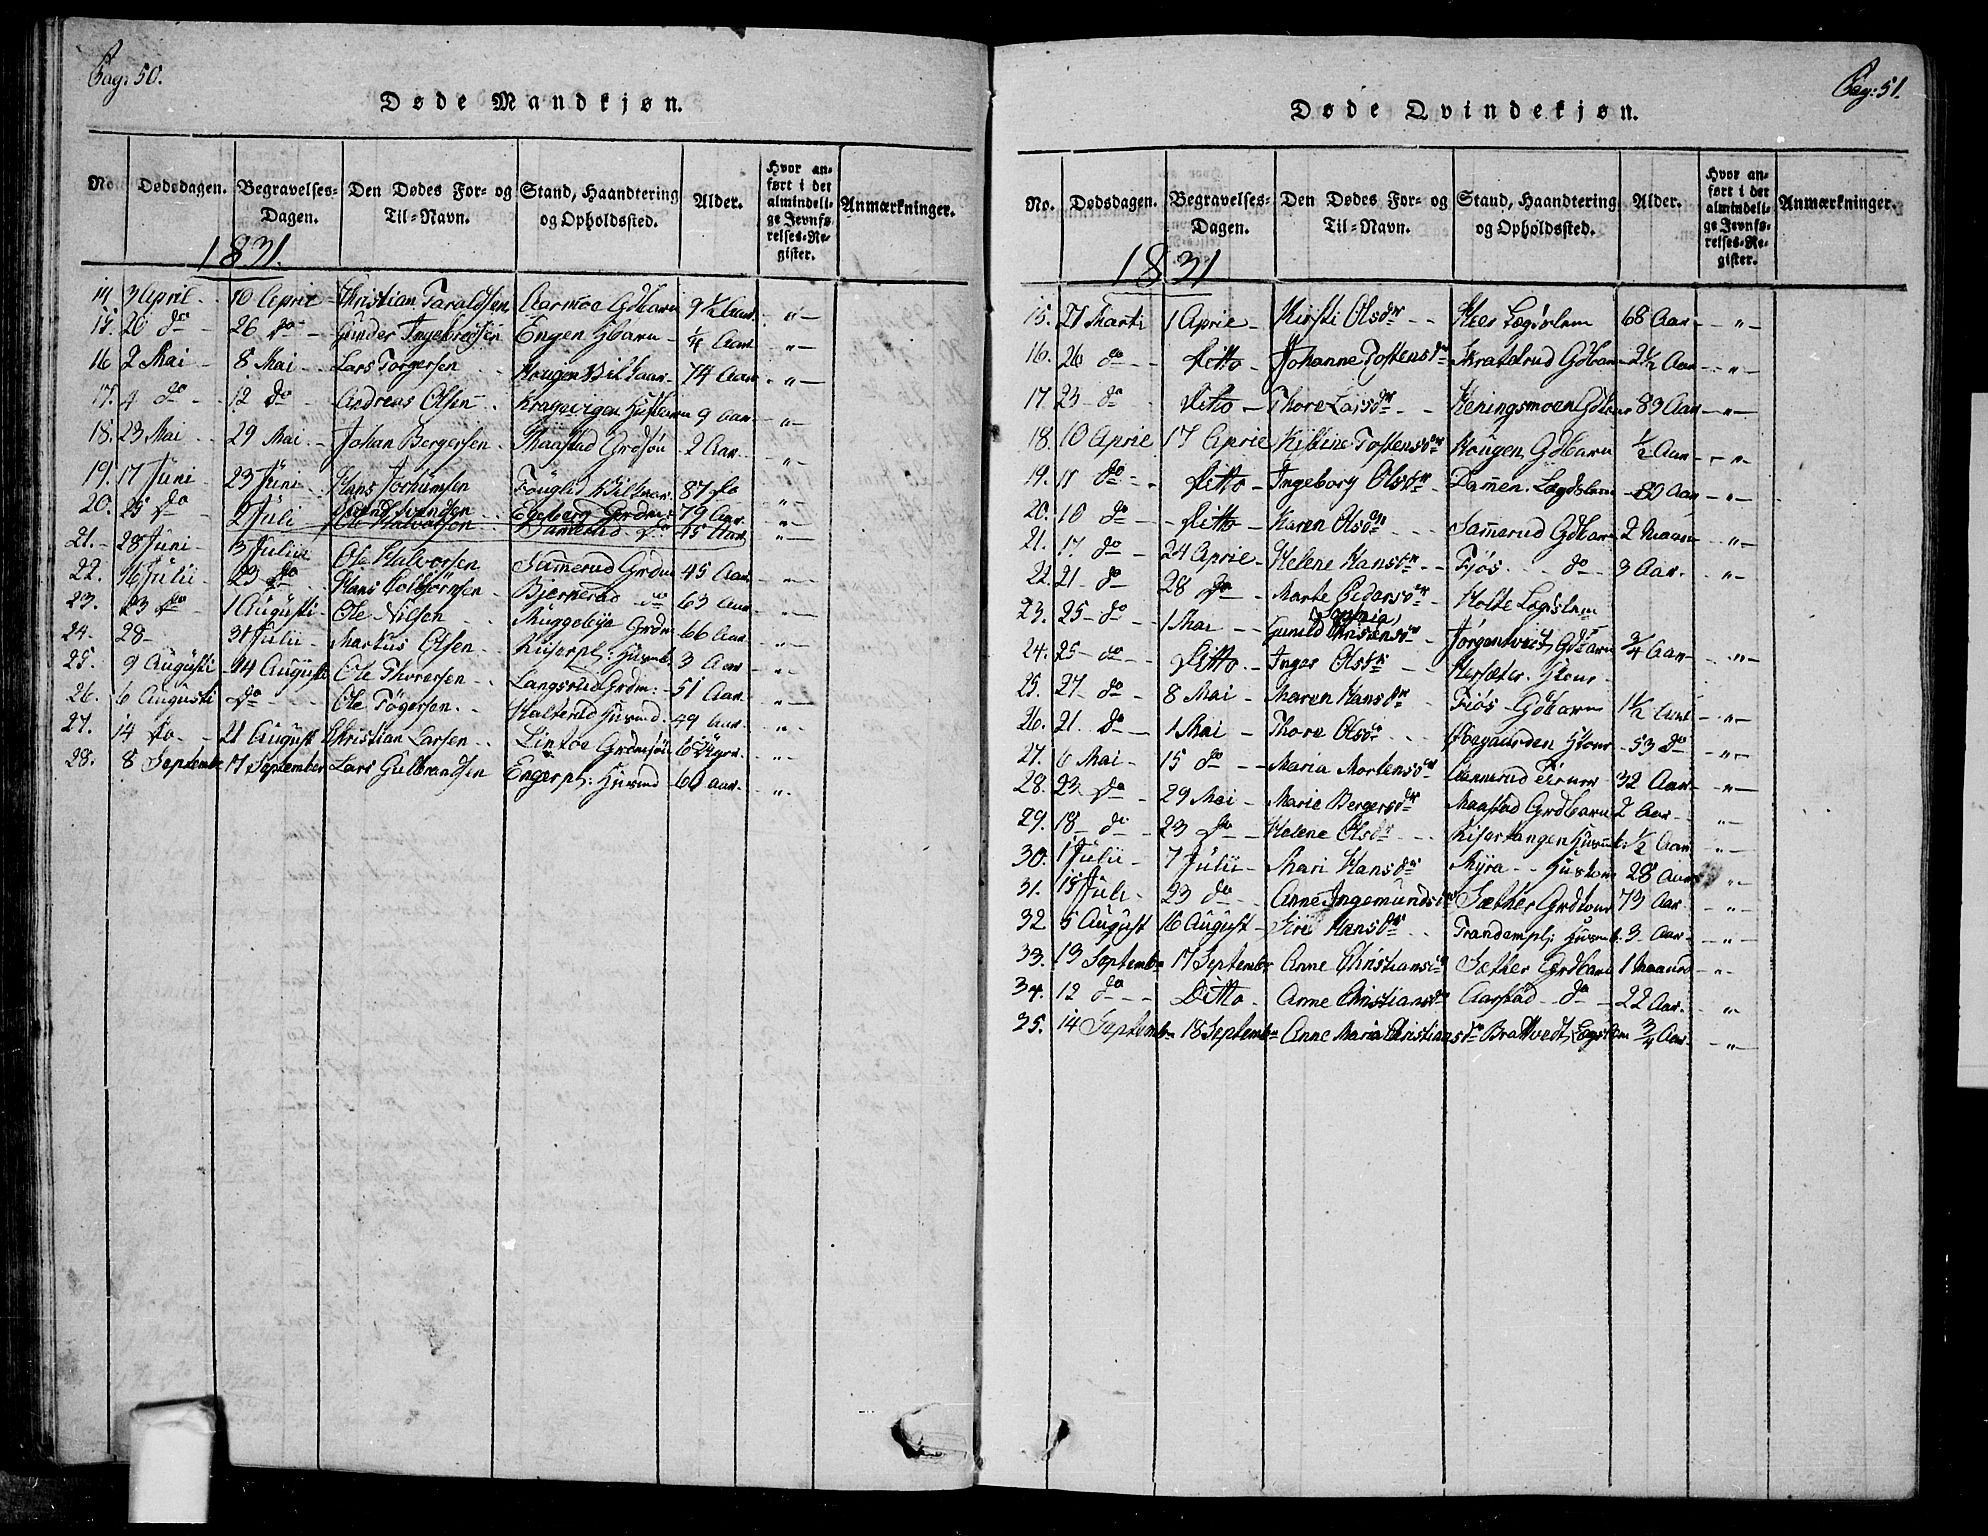 Pag: 50.
Døde Mandkjøn.
No. Dødsdagen. Begravelses-Dagen. Den Dødes For- og Til-Navn. Stand, Haandtering og Opholdssted. Alder. Hvor anført i det almindelige Jevnførelses-Register. Anmærkninger.
1831.
14 3 April 10 April Christian Taraldsen Gdbarn 9 1/2 Aar "
15. 20 do 26 do Gunder Ingebretsen Engen Hbarn 1/4 Aar "
16 2 Mai 8 Mai Lars Torgersen Hougen 74 Aar "
17. 4 do 12 do Andreas Olsen Kragevigen 9 Aar "
18. 23 Mai 29 Mai Johan Bergersen Maastad Grdsøn 2 Aar "
19. 17 Juni 23 Juni Hans Jochumsen 87 do "
20. 25 do 2 Juli Svendsen Egeberg Grdm: 79 Aar "
Ole Halvorsen Samerud do 45 Aar
21. 28 Juni 3 Julii Ole Halvorsen Samerud Grdm 45 Aar "
22. 16 Julii 23 do Hans Colbjørnsen Bjernerud do 63 Aar "
23. 23 do 1 Augusti Ole Nilsen Muggebye Grdm 66 Aar "
24. 28 31 Julii Markus Olsen 3 Aar "
25. 9 Augusti 14 Augusti Ole Thoresen Langsrud Grdm: 51 Aar "
26. 6 Augusti do Ole Tøgersen Halterud Husmd. 49 Aar "
27. 14 do 21 August Christian Larsen Lintoe "
28. 8 Septembr 17 September Lars Gulbrandsen Engerpl: Husmd 60 Aar "
Pag: 51.
Døde Qvindekjøn.
No. Dødsdagen. Begravelses-Dagen. Den Dødes For- og Til-Navn. Stand, Haandtering og Opholdssted. Alder. Hvor anført i det almindelige Jevnførelses-Register. Anmærkninger.
1831
15. 27 Marti 1 April Kirsti Olsdr Lægdslem 68 Aar "
16. 26 do Ditto Johanne Tostensdr Skratelrud Gdbarn 2 1/2 Aar "
17. 23 do Ditto Thore Larsdr Heningsmoen 83 Aar "
18. 10 April 17 April Tostensdr Hougen Gdbarn 1/2 Aar "
19. 11 do Ditto Ingeborg Olsdr Dammen Lægdslem 80 Aar "
20. 10 do Ditto Karen Olsdr Samerud Gdbarn 2 Maan "
21. 17 do 24 April Helene Hansdr Fjøs do 3 Aar "
22. 21 do 28 do Marte Pedersdr Holte Lægdslem
23. 25 do 1 Mai Gunild Sophia Jørgentvedt Gdbarn 3/4 Aar "
24. 25 do Ditto Inger Olsdr
25. 27 do 8 Mai Maren Hansdr Fjøs Gdbarn 1 1/2 Aar "
26. 21 do 1 Mai Thore Olsdr 53 do "
27. 6 Mai 15 do Maria Mortensdr 32 Aar "
28. 23 do 29 Mai Marie Bergersdr Maastad Grdbarn 2 Aar "
29. 18 do 23 do Helene Olsdr 1/2 Aar "
30. 1 Julii 7 Julii Mari Hansdr Myra 28 Aar "
31. 15 Juli 23 do Anne Ingemundsdr Sæther 73 Aar "
32 5 August 16 August Siri Hansdr Trandempl: 3 Aar "
33. 13 Septembr 17 Septembr Anne Christiansdr Sæther Grdbarn 1 Maaned "
34. 12 do Ditto Anne Christiansdr Aarstad do 22 Aar "
35. 14 Septembr 18 Septembr Anne Maria Christiansdr Brattvedt Lægdslem 3/4 Aar "